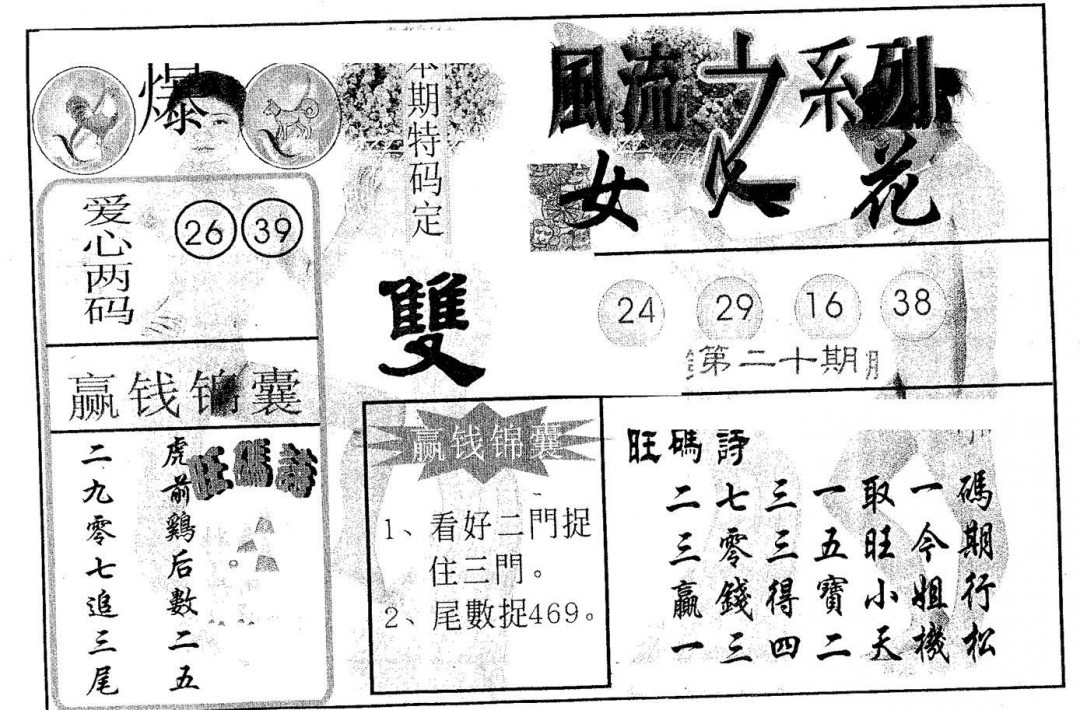 爆
本期特码定
雙
風流之系列
女
花
爱心两码
26 39
24 29 16 38
第二十期
赢钱锦囊
旺碼詩
虎前鷄后數二五
二九零七追三尾
赢钱锦囊
1、看好二門捉
住三門。
2、尾數捉469。
旺碼詩
二七三一取一碼
三零三五旺今期
贏錢得寶小姐行
一三四二天機松